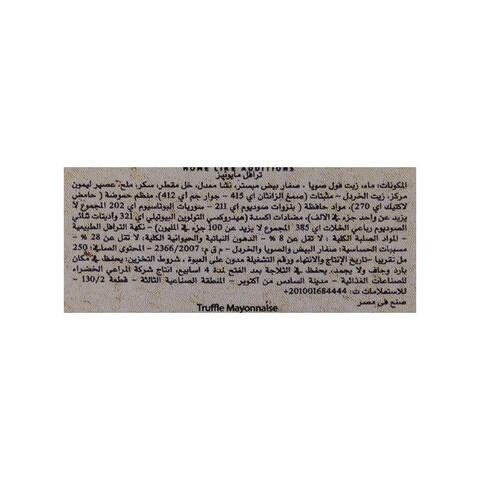 HOME LIKE ADDITIONS
ترافل مايونيز
المكونات: ماء، زيت فول صويا ، صفار بيض مبستر، نشا معدل، خل مقطر، سكر، ملح، عصير ليمون
مركز، زيت الخردل – مثبتات (صمغ الزانثان اي 415 – جوار جم أي 412)، منظم حموضة ( حامض
لاكتيك أي 270)، مواد حافظة ( بنزوات صوديوم أي 211 – سوربات البوتاسيوم أي 202 المجموع لا
يزيد عن واحد جزء في الالف)، مضادات اكسدة (هيدروكسي التولوين البيوتيلي أي 321 واديتات ثنائي
الصوديوم رباعي الخلات اي 385 المجموع لا يزيد عن 100 جزء في المليون) – نكهة الترافل الطبيعية
– المواد الصلبة الكلية : لا تقل عن 8 % – الدهون النباتية والحيوانية الكلية: لا تقل عن 28 % –
مسببات الحساسية: صفار البيض والصويا والخردل – م ق م، 2366/2007، المحتوى الصافي: 250
مل تقريبا –تاريخ الإنتاج والانتهاء ورقم التشغيلة مدون على العبوة ، شروط التخزين: يحفظ في مكان
بارد وجاف ولا يجمد، يحفظ في الثلاجة بعد الفتح لمدة 4 اسابيع، انتاج شركة المراعي الخضراء
للصناعات الغذائية – مدينة السادس من أكتوبر – المنطقة الصناعية الثالثة – قطعة 130/2 –
للاستعلامات ت: 201001684444+
صنع في مصر
Truffle Mayonnaise